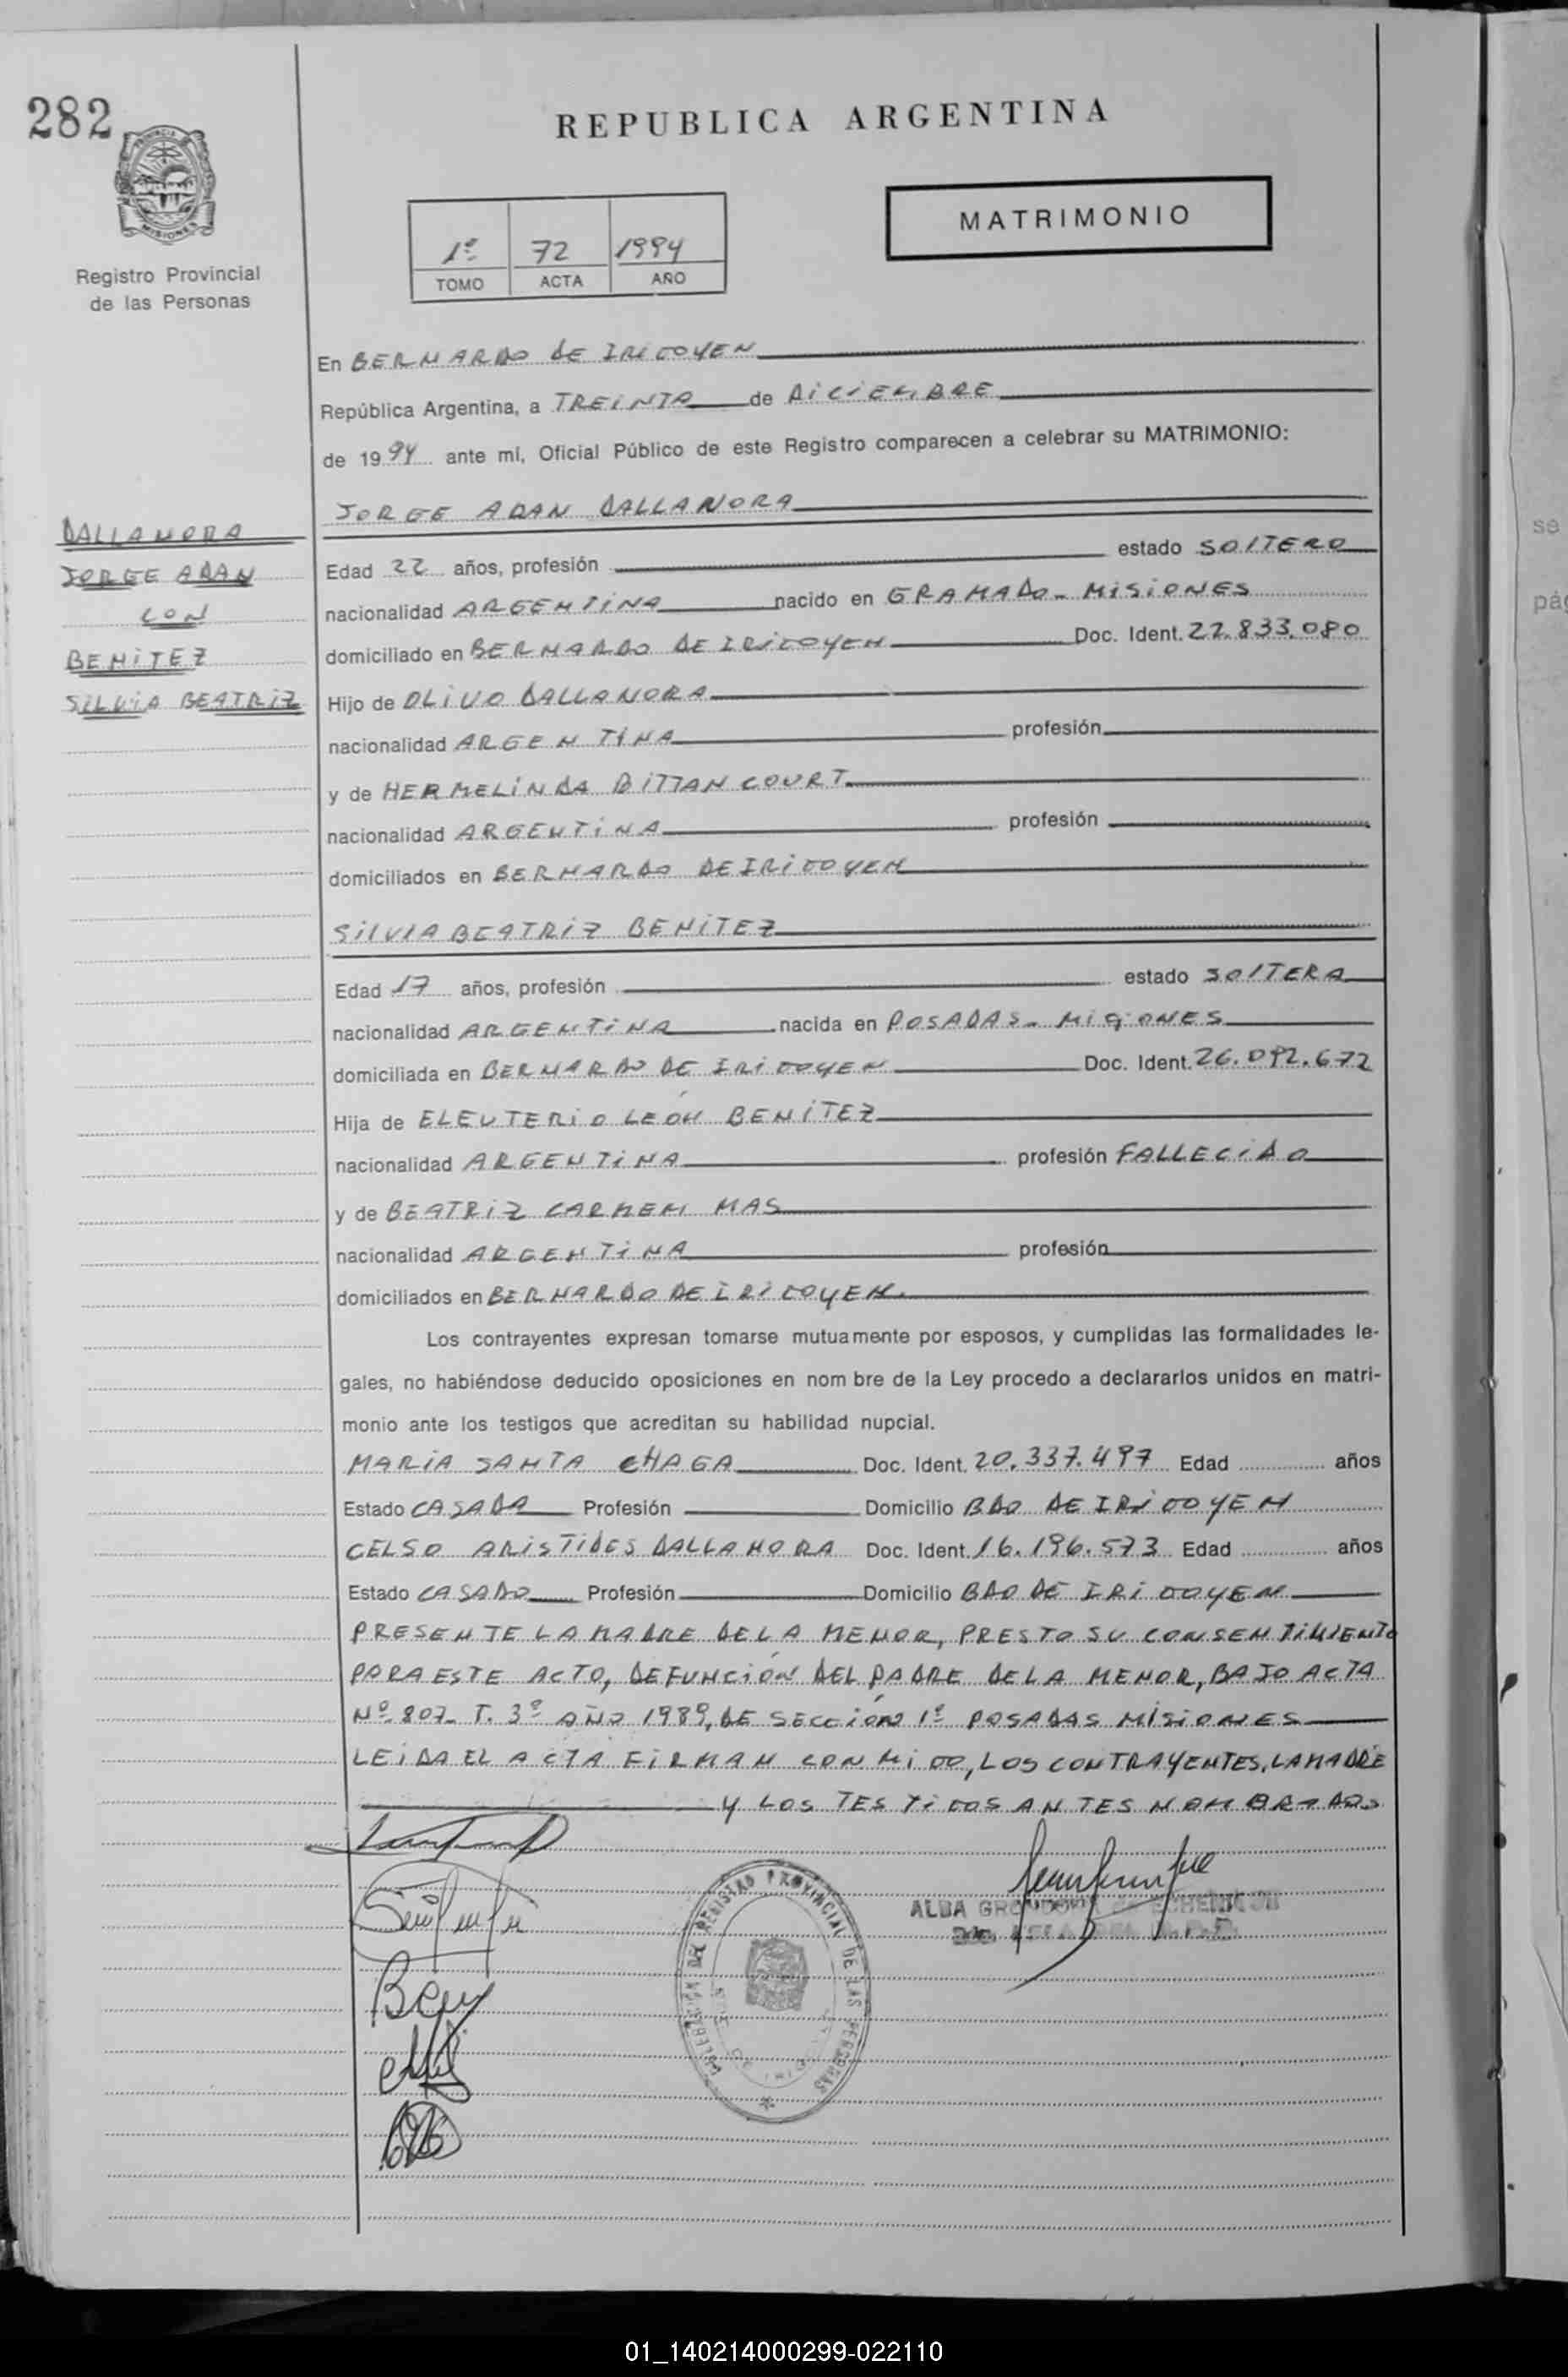 282
REPUBLICA ARGENTINA
MATRIMONIO
1º 72 1994
TOMO ACTA AÑO
Registro Provincial
de las Personas
En BERNARDO DE IRIGOYEN
República Argentina, a TREINTA de DICIEMBRE
de 1994 ante mí, Oficial Público de este Registro comparecen a celebrar su MATRIMONIO:
JORGE ADAN DALLANORA
DALLANORA
JORGE ADAN
CON
BENITEZ
SILVIA BEATRIZ
Edad 22 años, profesión estado SOLTERO
nacionalidad ARGENTINA nacido en GRAMADO - MISIONES
domiciliado en BERNARDO DE IRIGOYEN Doc. Ident. 22.833.080
Hijo de OLIVO DALLANORA
nacionalidad ARGENTINA profesión
y de HERMELINDA BITTANCOURT
nacionalidad ARGENTINA profesión
domiciliados en BERNARDO DE IRIGOYEN
SILVIA BEATRIZ BENITEZ
Edad 17 años, profesión estado SOLTERA
nacionalidad ARGENTINA nacida en POSADAS - MISIONES
domiciliada en BERNARDO DE IRIGOYEN Doc. Ident. 26.092.672
Hija de ELEUTERIO LEÓN BENITEZ
nacionalidad ARGENTINA profesión FALLECIDO
y de BEATRIZ CARMEN MAS
nacionalidad ARGENTINA profesión
domiciliados en BERNARDO DE IRIGOYEN.
Los contrayentes expresan tomarse mutuamente por esposos, y cumplidas las formalidades le-
gales, no habiéndose deducido oposiciones en nom bre de la Ley procedo a declararlos unidos en matri-
monio ante los testigos que acreditan su habilidad nupcial.
MARIA SANTA CHAGA Doc. Ident. 20.337.497 Edad años
Estado CASADA Profesión Domicilio BDO DE IRIGOYEN
CELSO ARISTIDES DALLANORA Doc. Ident. 16.196.573 Edad años
Estado CASADO Profesión Domicilio BDO DE IRIGOYEN
PRESENTE LA MADRE DE LA MENOR, PRESTO SU CONSENTIMIENTO
PARA ESTE ACTO, DEFUNCIÓN DEL PADRE DE LA MENOR, BAJO ACTA
Nº 807- T. 3º AÑO 1989, DE SECCIÓN 1º POSADAS MISIONES
LEIDA EL ACTA FIRMAN CONMIGO, LOS CONTRAYENTES, LA MADRE
Y LOS TESTIGOS ANTES NOMBRADOS
REGISTRO PROVINCIAL DE LAS PERSONAS
ALBA
01_140214000299-022110